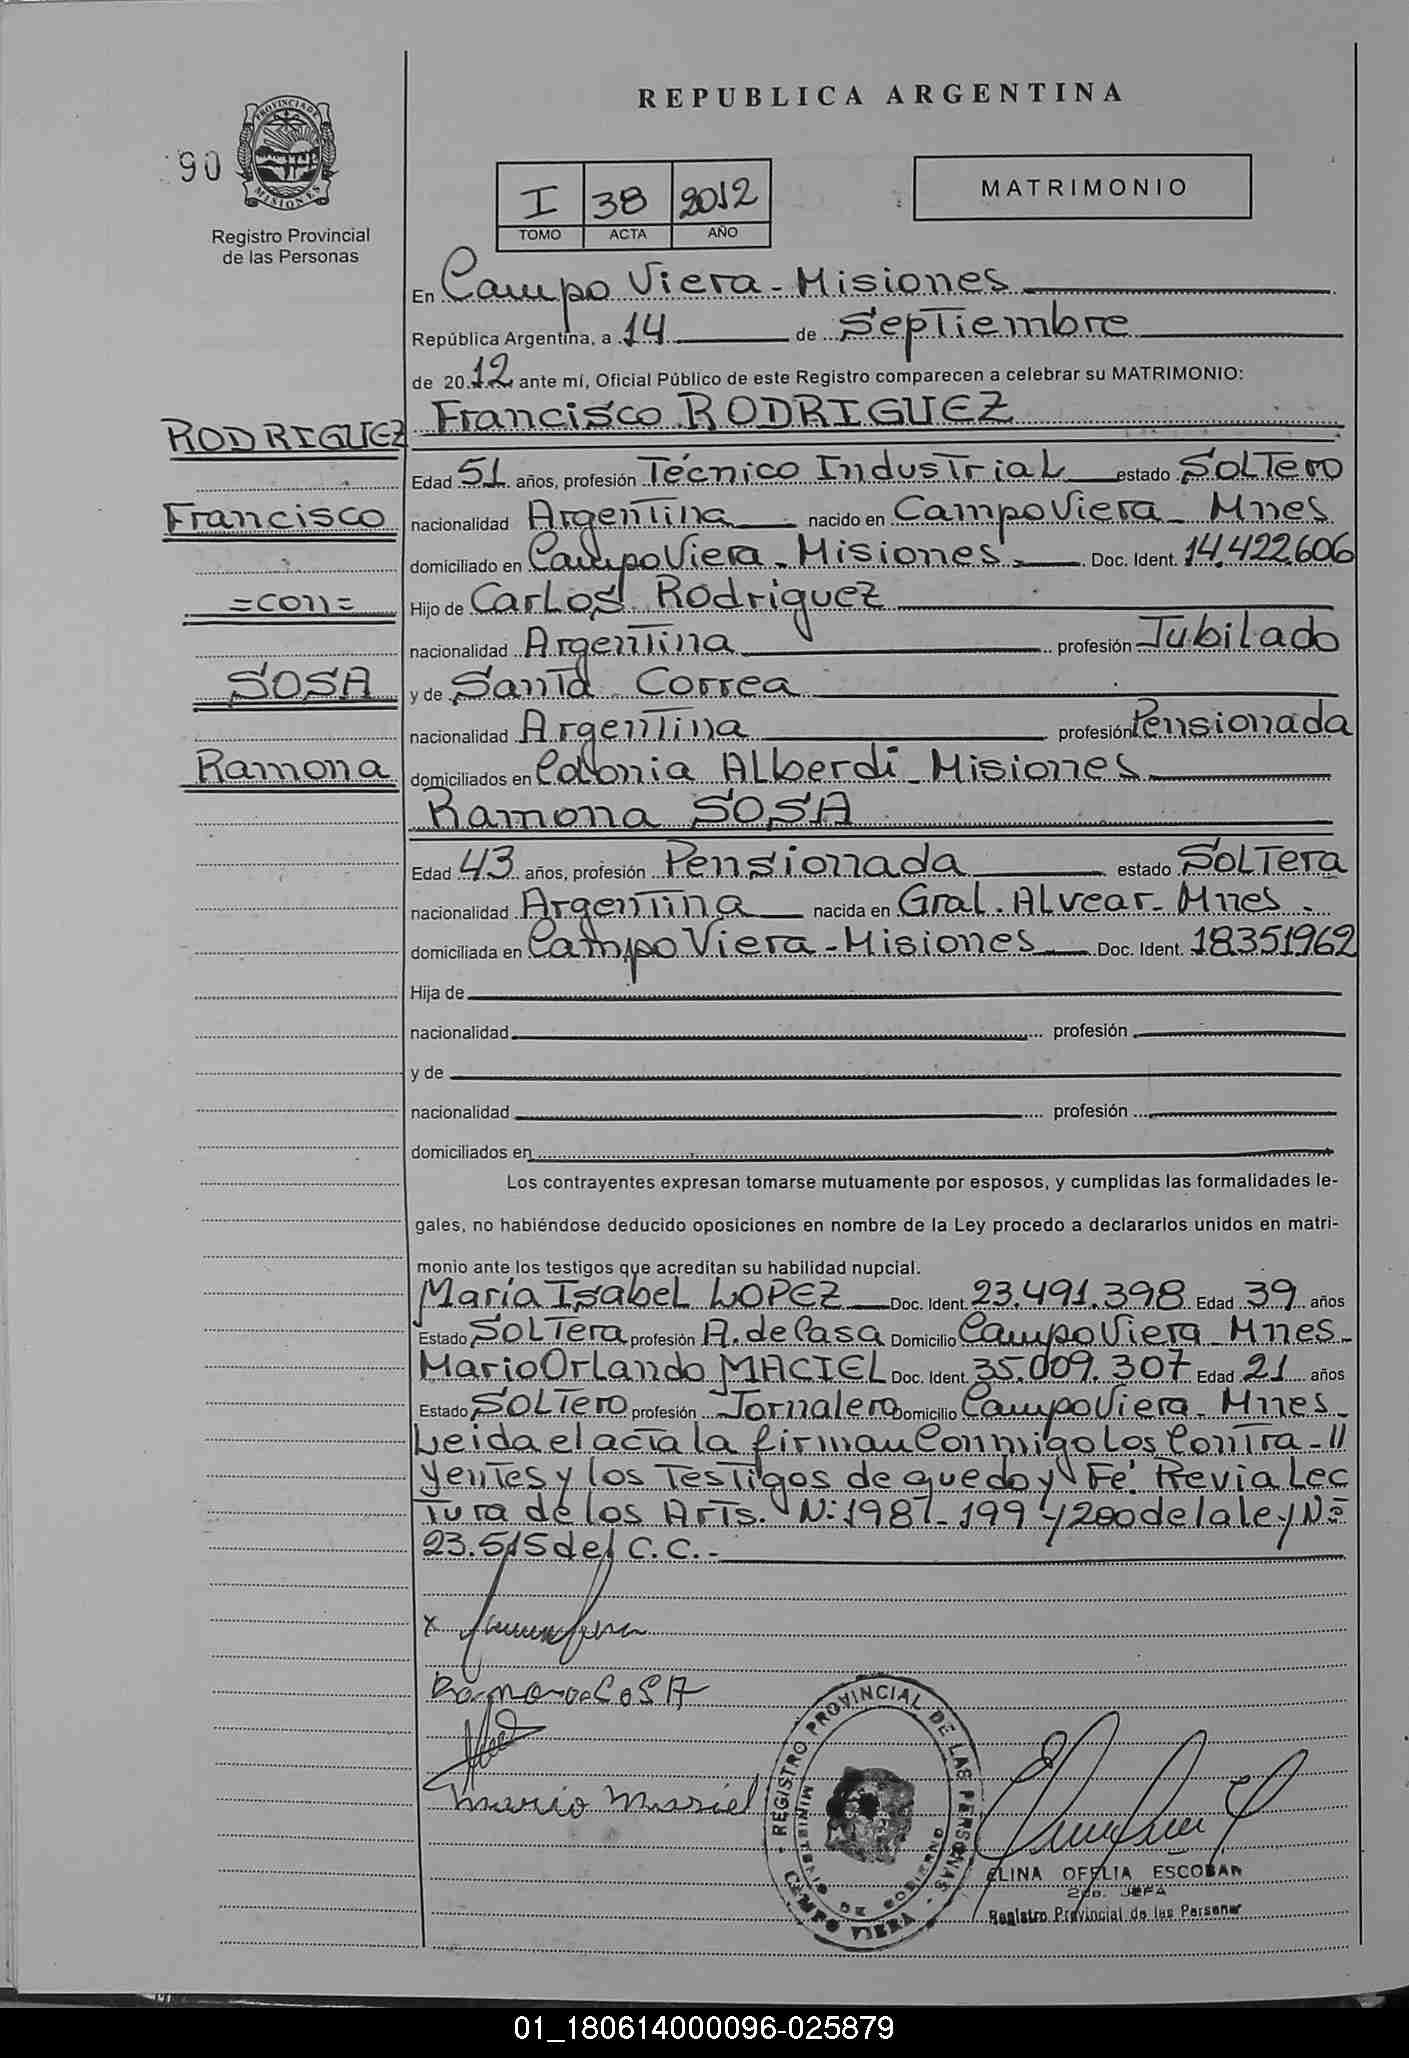 REPUBLICA ARGENTINA
90
PROVINCIA DE MISIONES
Registro Provincial
de las Personas
I 38 2012
TOMO ACTA AÑO
MATRIMONIO
En Campo Viera - Misiones
República Argentina, a 14 de Septiembre
de 2012 ante mí, Oficial Público de este Registro comparecen a celebrar su MATRIMONIO:
RODRIGUEZ
Francisco
=con=
SOSA
Ramona
Francisco RODRIGUEZ
Edad 51 años, profesión Técnico Industrial estado Soltero
nacionalidad Argentina nacido en Campo Viera - Mnes
domiciliado en Campo Viera - Misiones - Doc. Ident. 14.422.606
Hijo de Carlos Rodriguez
nacionalidad Argentina profesión Jubilado
y de Santa Correa
nacionalidad Argentina profesión Pensionada
domiciliados en Colonia Alberdi - Misiones
Ramona SOSA
Edad 43 años, profesión Pensionada estado Soltera
nacionalidad Argentina nacida en Gral. Alvear - Mnes.
domiciliada en Campo Viera - Misiones Doc. Ident. 18351962
Hija de
nacionalidad profesión
y de
nacionalidad profesión
domiciliados en
Los contrayentes expresan tomarse mutuamente por esposos, y cumplidas las formalidades le-
gales, no habiéndose deducido oposiciones en nombre de la Ley procedo a declararlos unidos en matri-
monio ante los testigos que acreditan su habilidad nupcial.
María Isabel LOPEZ Doc. Ident. 23.491.398 Edad 39 años
Estado Soltera profesión A. de Casa Domicilio Campo Viera - Mnes -
Mario Orlando MACIEL Doc. Ident. 35.009.307 Edad 21 años
Estado Soltero profesión Jornalero Domicilio Campo Viera - Mnes -
Leida el acta la firman Conmigo los Contra - //
yentes y los Testigos de que doy Fé. Previa Lec
Tura de los Arts. N: 198 - 199 y 200 de la ley Nº
23.515 del C.C. -
x
Ramona SoSA
Mario Masiel
REGISTRO PROVINCIAL DE LAS PERSONAS - CAMPO VIERA
MINISTERIO DE GOBIERNO
ELINA OFELIA ESCOBAR
2do. JEFA
Registro Provincial de las Personas
01_180614000096-025879